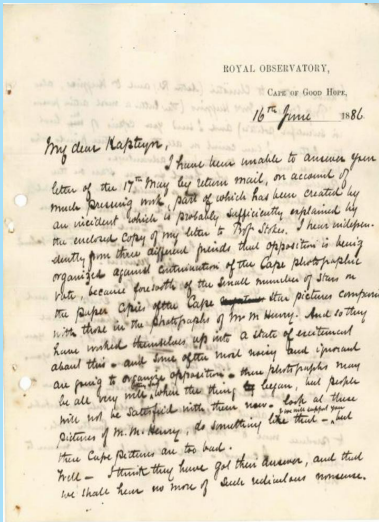 ROYAL OBSERVATORY,
CAPE OF GOOD HOPE,
16th June 1886
My dear Kapteyn,
I have been unable to answer your
letter of the 17th May by return mail, on account of
much pressing work, part of which has been created by
an incident which is probably sufficiently explained by
the enclosed copy of my letter to Prof Stokes. I hear indepen-
dently from three different friends that opposition is being
organized against continuation of the Cape photographic
vote, because forsooth of the small number of stars on
the paper copies of the Cape star pictures compared
with those in the photographs of Mr M. Henry. And so they
have worked themselves up into a state of excitement
about this - and some of the most noisy and ignorant
are going to organize opposition - these photographs may
be all very well when the thing began, but people
will not be satisfied with them now. Look at these
pictures of M. M. Henry, do something like that & we will support you - but
these Cape pictures are too bad.
Well - I think they have got their answer, and that
we shall hear no more of such ridiculous nonsense.